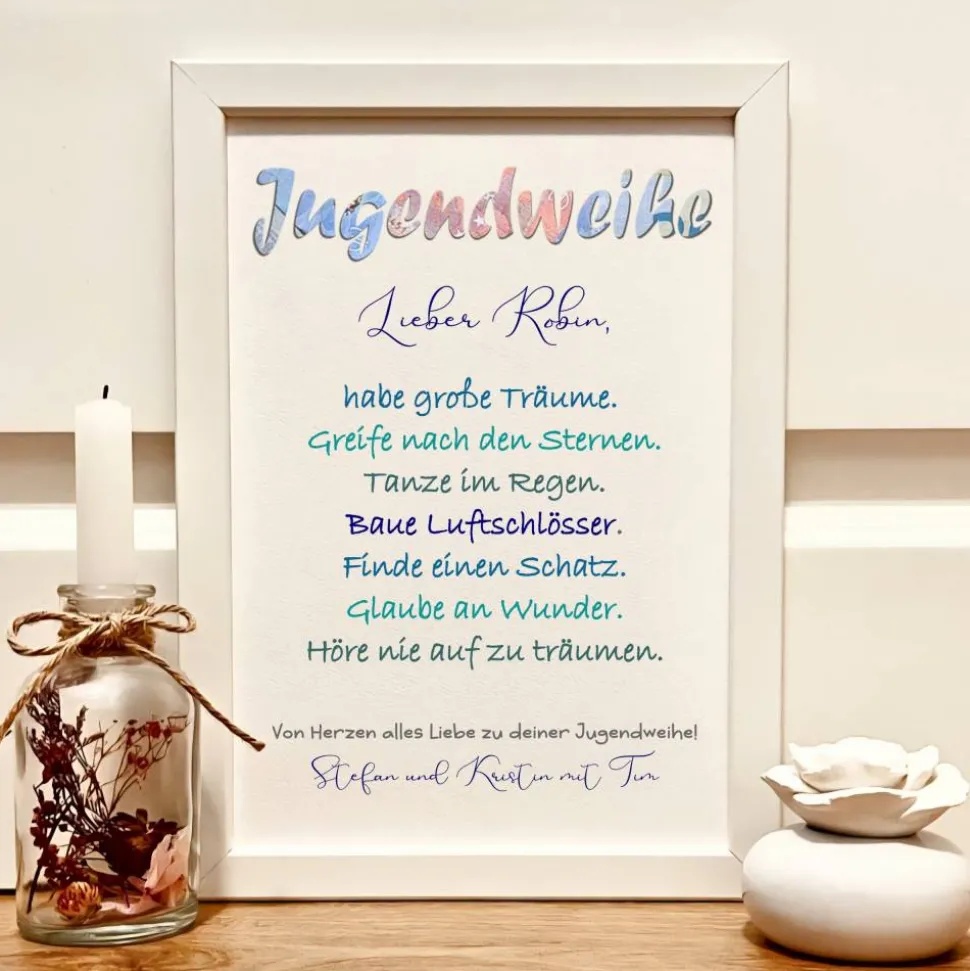 Jugendweihe
Lieber Robin,
habe große Träume.
Greife nach den Sternen.
Tanze im Regen.
Baue Luftschlösser.
Finde einen Schatz.
Glaube an Wunder.
Höre nie auf zu träumen.
Von Herzen alles Liebe zu deiner Jugendweihe!
Stefan und Kristin mit Tim